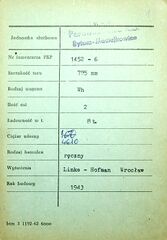 Jednostka służbowa
Bytom-Maciejkowice
Nr inwentarza PKP 1452 - 6
Szerokość toru 785 mm
Rodzaj wagonu Wh
Ilość osi 2
Ładowność w t. 8 t.
Ciężar własny
4610
Rodzaj hamulca ręczny
Wytwórnia Linke - Hofman Wrocław
Rok budowy 1943